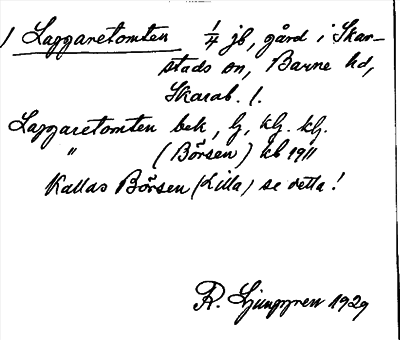 1 Lapparetomten 1/4 jb, gård i Skar-
stads sn, Barne hd,
Skarab. l.
Lapparetomten bek, lj, klj. klj.
" (Börsen) kb 1911
Kallas Börsen (Lilla) se detta!
R. Ljunggren 1929